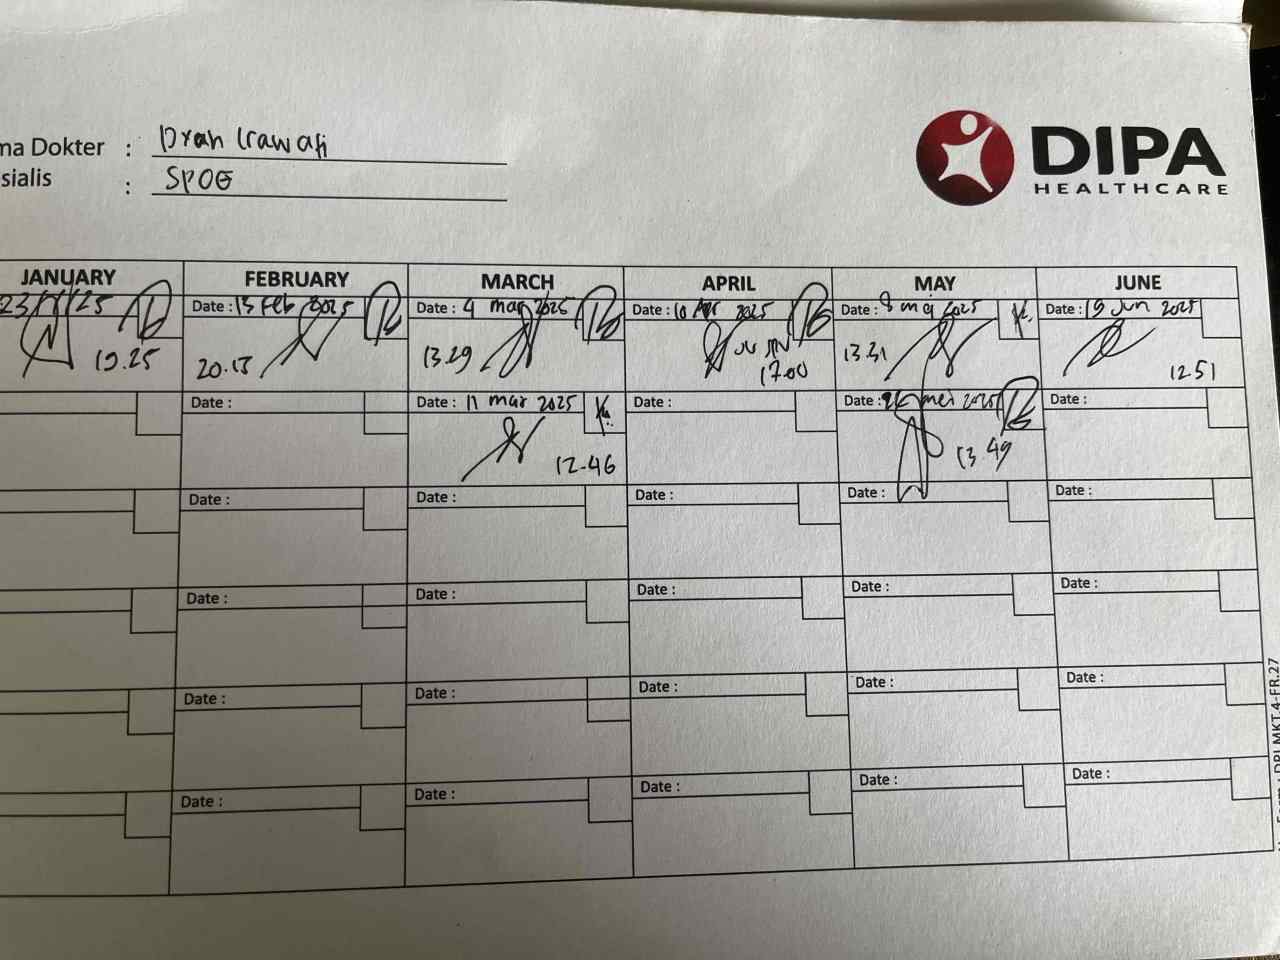 ma Dokter :
sialis : SPOG
DIPA
HEALTHCARE
JANUARY FEBRUARY MARCH APRIL MAY JUNE
23/1/25 Date : 13 Feb 2025 Date : 4 mar 2025 Date : 10 Apr 2025 Date : 8 mei 2025 Date : 19 Jun 2025
19.25 20.15 13.29 17.00 13.31 12.51
Date : Date : 11 mar 2025 Date : Date : mei 2025 Date :
12.46 13.49
Date : Date : Date : Date : Date :
Date : Date : Date : Date : Date :
Date : Date : Date : Date : Date :
Date : Date : Date : Date : Date :
DPI.MKT.4-FR.27